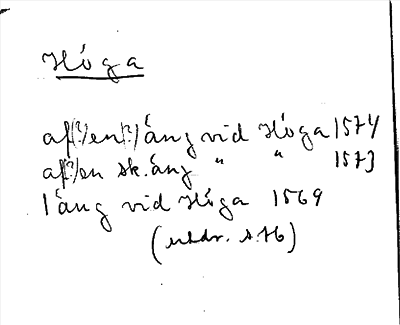 Höga
af(?)en(?) äng vid Höga 1574
af(?)en sk.äng " " 1573
1 äng vid Höga 1569
(utdr. s.76)